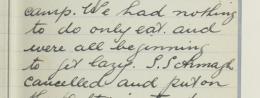 camp. We had nothing
to do only eat. and
were all beginning
to fit lazy. S.S Armagh
cancelled and put on